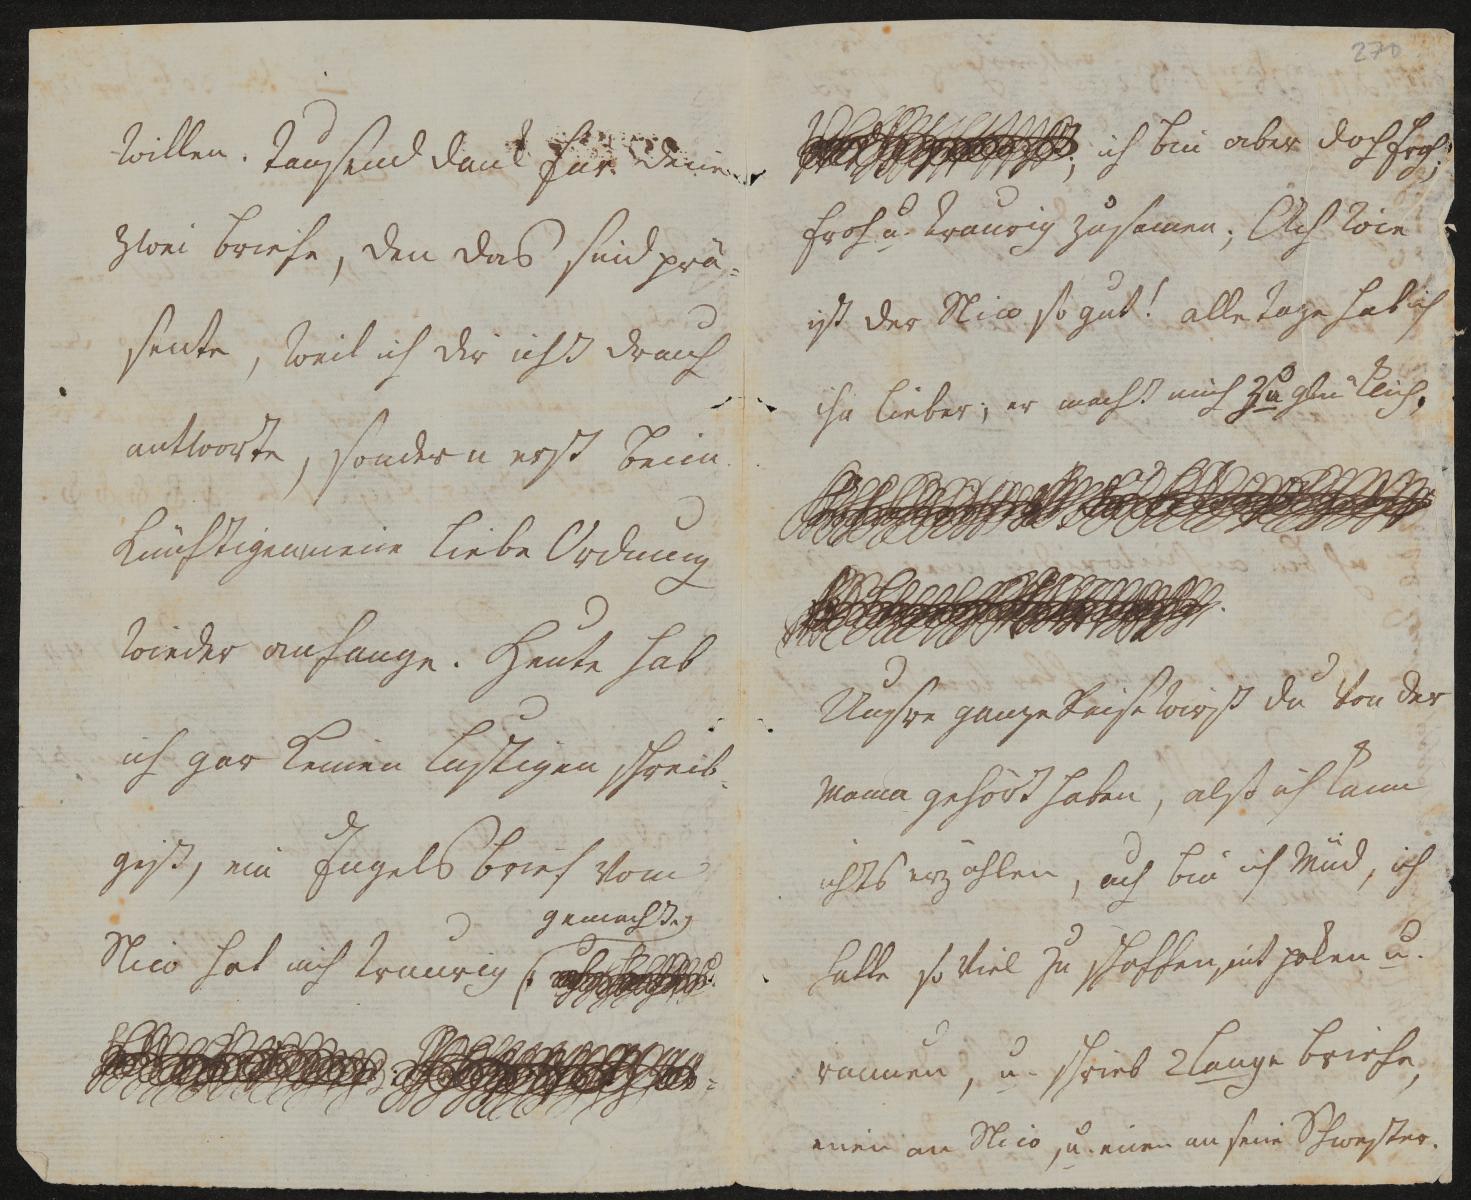 willen. Tausend dank für deine
zwei briefe, den das sind prä-
sente, weil ich dir ichts drauf
antworte, sondern erst beim
künftigen meine liebe Ordnung
wieder anfange. Heute hab
ich gar keinen lustigen schreib-
geist, ein Engels brief vom
gemacht,
Nico hat mich traurig
270
; ich bin aber doch froh;
froh u. traurig zusamen; Ach wie
ist der Nico so gut! alle tage hab ich
ihn lieber; er macht mich zu glüklich.
Unsre ganze Reise wirst du von der
Mama gehört haben, alst ich kann
ichts erzählen, auch bin ich müd, ich
hatte so viel zu schaffen, mit paken u.
raumen, u. schrieb 2 lange briefe,
einen an Nico, u. einen an seine Schwester.